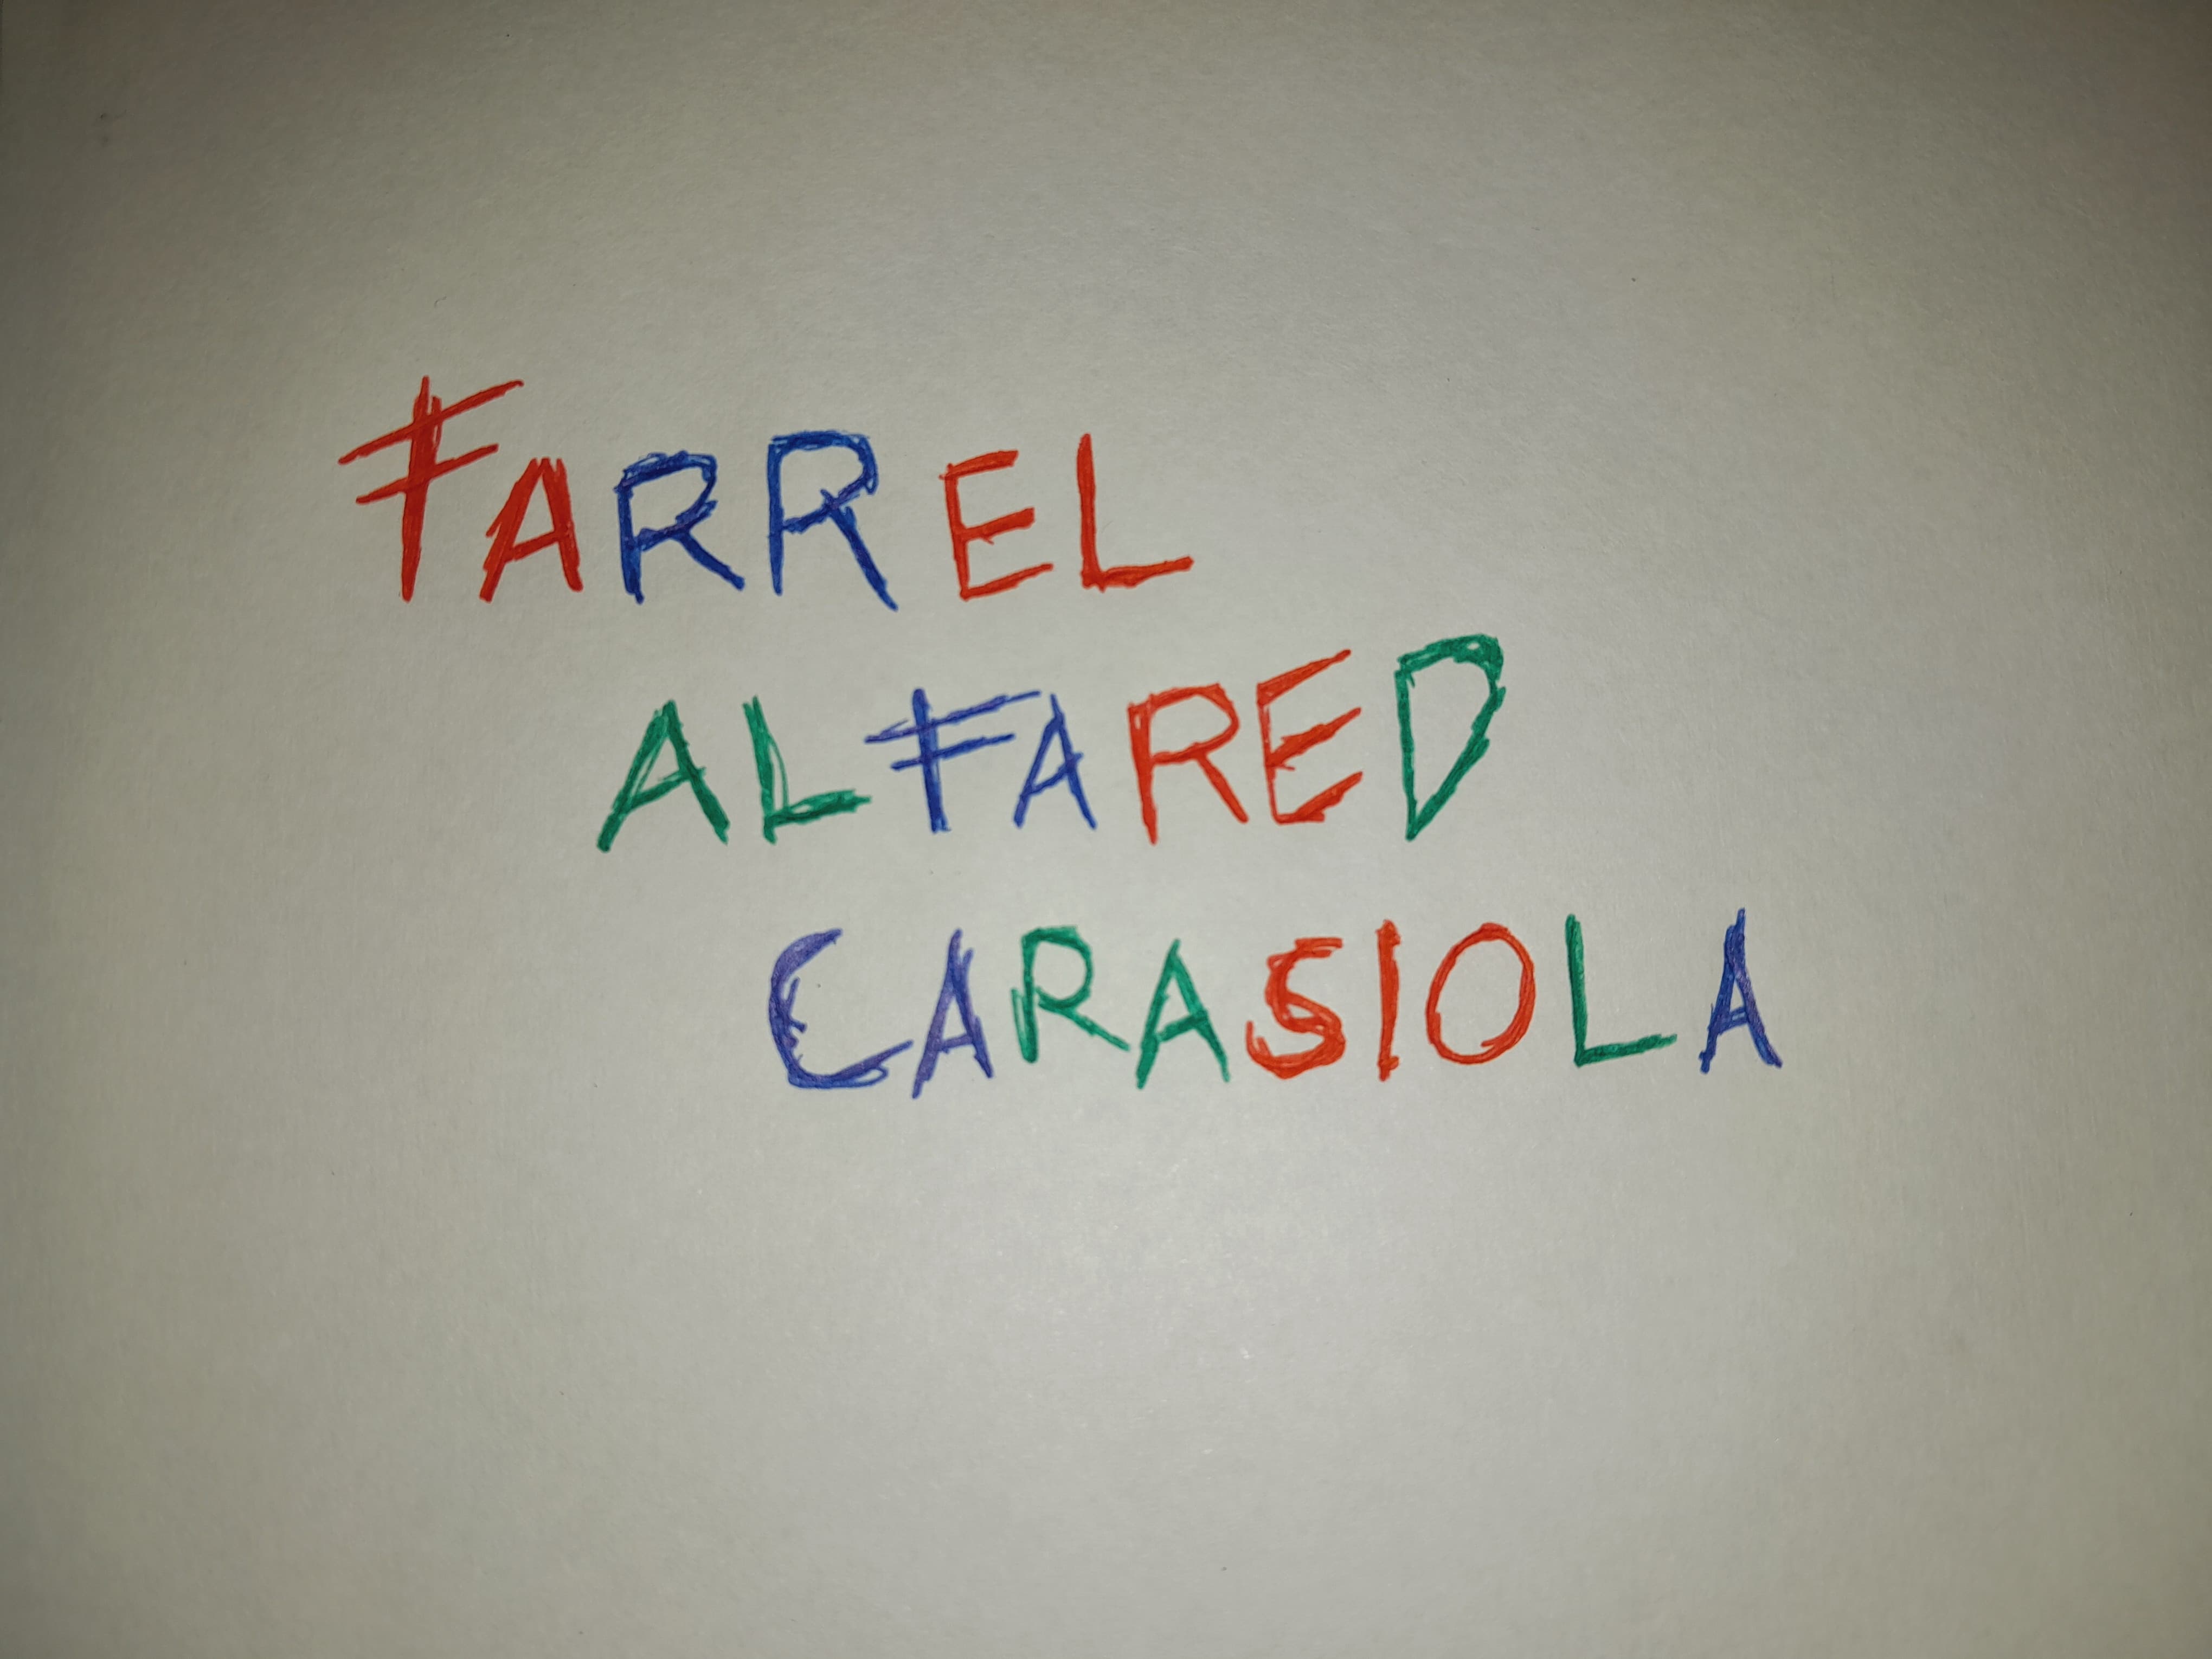 FARREL
ALFARED
CARASIOLA